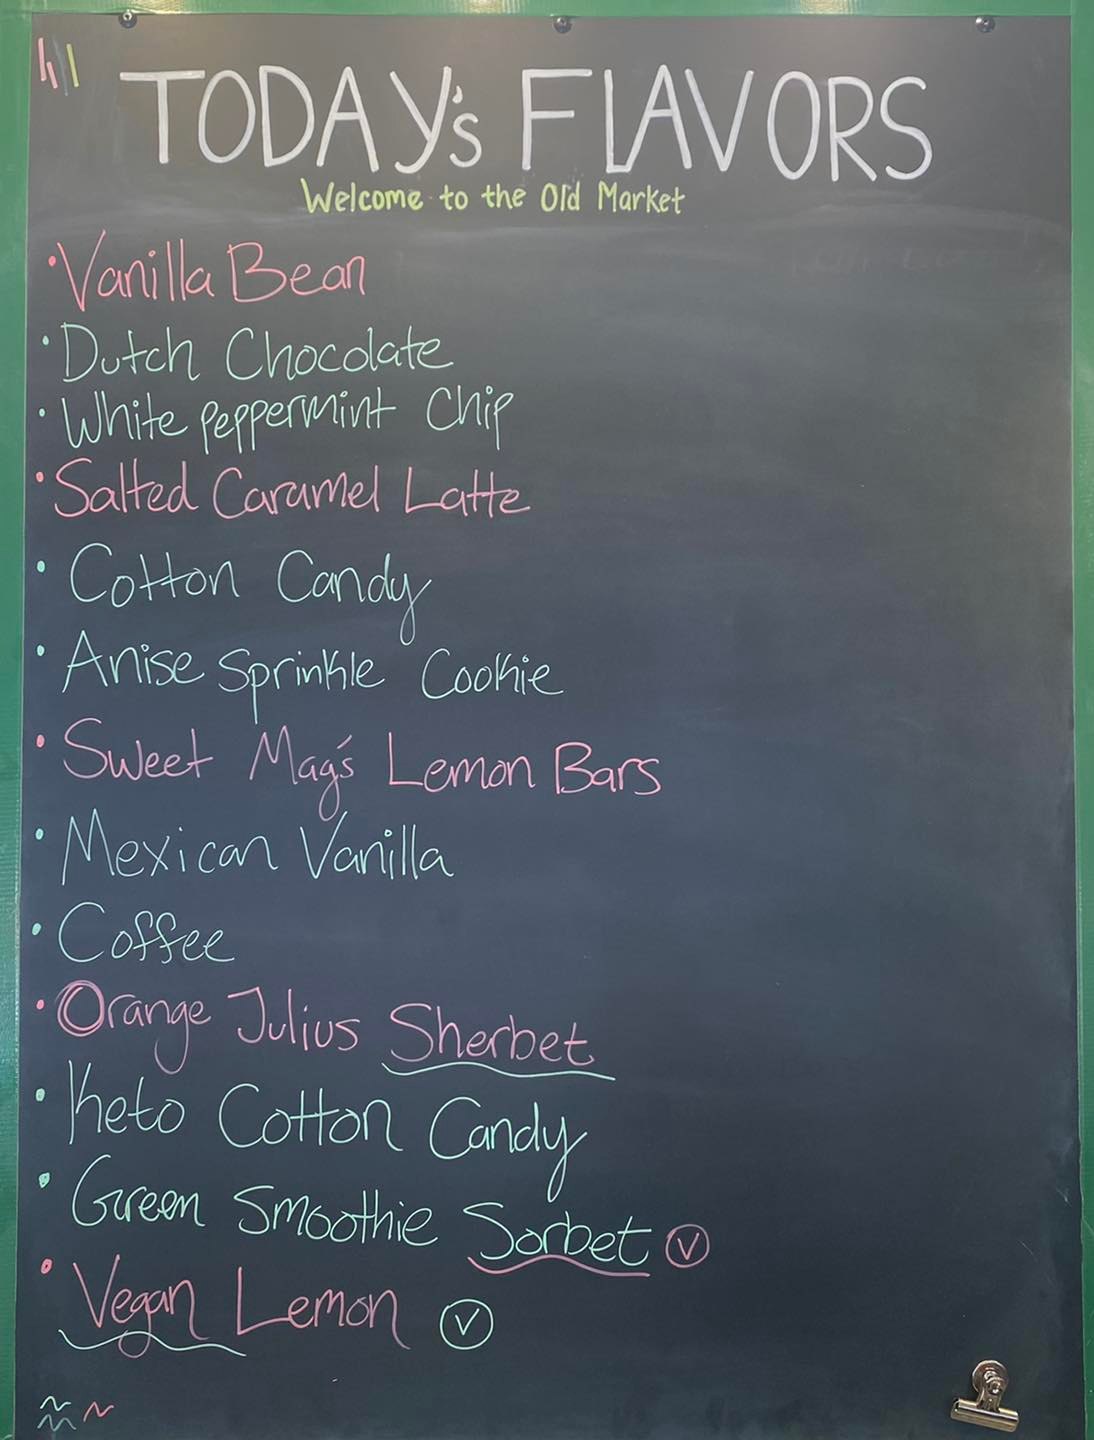 TODAY's FLAVORS
Welcome to the Old Market
• Vanilla Bean
• Dutch Chocolate
• White peppermint Chip
• Salted Caramel Latte
• Cotton Candy
• Anise Sprinkle Cookie
• Sweet Mag's Lemon Bars
• Mexican Vanilla
• Coffee
• Orange Julius Sherbet
• Keto Cotton Candy
• Green Smoothie Sorbet Ⓥ
• Vegan Lemon Ⓥ